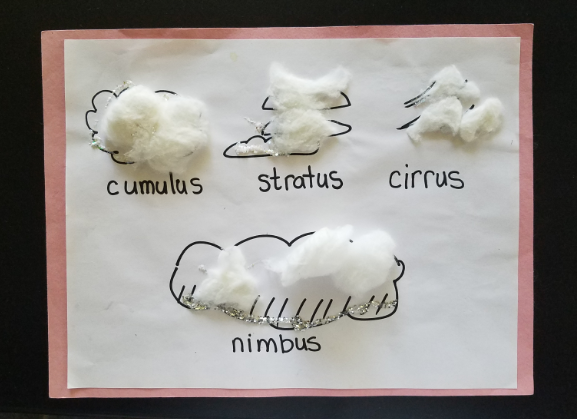 cumulus stratus cirrus
nimbus